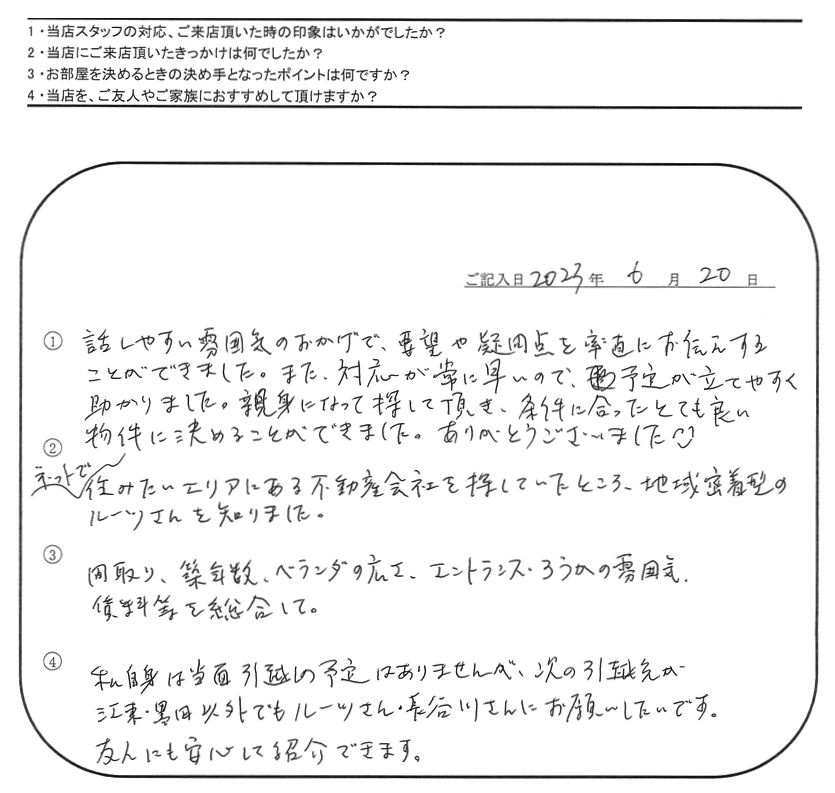 1・当店スタッフの対応、ご来店頂いた時の印象はいかがでしたか？
2・当店にご来店頂いたきっかけは何でしたか？
3・お部屋を決めるときの決め手となったポイントは何ですか？
4・当店を、ご友人やご家族におすすめして頂けますか？
ご記入日 2023年 6月 20日
① 話しやすい雰囲気のおかげで、要望や疑問点を率直にお伝えする
ことができました。また、対応が常に早いので、予定が立てやすく
助かりました。親身になって探して頂き、条件に合ったとても良い
物件に決めることができました。ありがとうございました
② ネットで住みたいエリアにある不動産会社を探していたところ、地域密着型の
ルーツさんを知りました。
③ 間取り、築年数、ベランダの広さ、エントランス・ろうかの雰囲気、
賃料等を総合して。
④ 私自身は当面引越しの予定はありませんが、次の引越先が
江東・墨田以外でもルーツさん・長谷川さんにお願いしたいです。
友人にも安心して紹介できます。